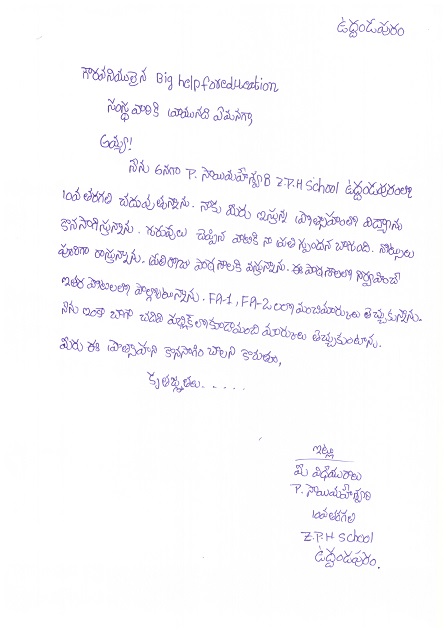 ఉద్దండపురం
గౌరవనీయులైన Big helpforeducation
సంస్థ వారికి వ్రాయునది ఏమనగా
అయ్యా!
నేను అనగా P. సాయిమహేశ్వరి Z.P.H School ఉద్దండపురంలో
10వ తరగతి చదువుతున్నాను. నాకు మీరు ఇస్తున్న ప్రోత్సాహంతో విద్యాను
కొనసాగిస్తున్నాను. గురువులు చెప్పిన వాటికి నా ప్రతి స్పందన బాగుంది. నోట్సులు
పూర్తిగా రాస్తున్నాను. ప్రతిరోజు పాఠశాలకి వస్తున్నాను. ఈ పాఠశాలలో నిర్వహించే
ఇతర పోటీలలో పాల్గొంటున్నాను. FA-1, FA-2 లలో మంచిమార్కులు తెచ్చుకున్నాను.
నేను ఇంకా బాగా చదివి పబ్లిక్ లో కూడా మంచి మార్కులు తెచ్చుకుంటాను.
మీరు ఈ ప్రోత్సాహాన్ని కొనసాగించాలని కోరుతూ,
కృతజ్ఞతలు.....
ఇట్లు
మీ విధేయురాలు
P. సాయిమహేశ్వరి
10వ తరగతి
Z.P.H School
ఉద్దండపురం.